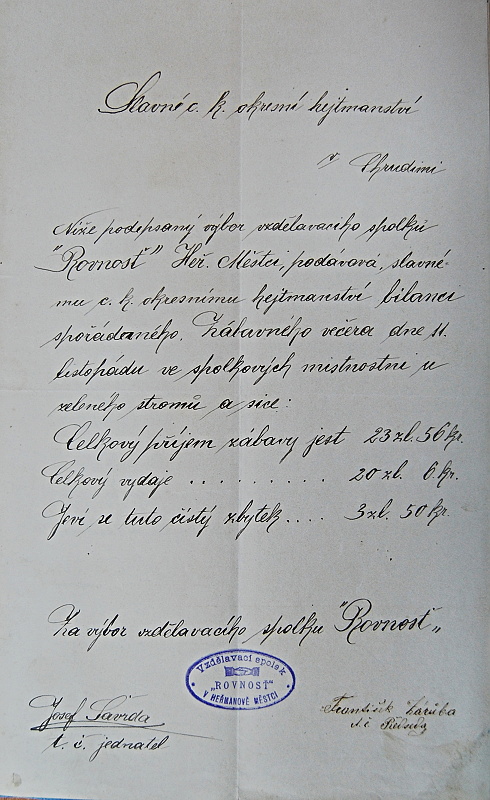 Slavné c. k. okresní hejtmanství
v Chrudimi
Níže podepsaný výbor vzdělavacího spolků
"Rovnosť" Heř. Městci, podávová, slavné-
mu c. k. okresnímu hejtmanství bilanci
spořádaného. Zábavného večera dne 11.
listopádu ve spolkových mistnostni u
zeleného stromů a sice:
Celkový příjem zábavy jest 23 zl. 56 kr.
Celkový vydaje .......... 20 zl. 6. kr.
Jeví se tuto čistý zbytek.... 3 zl. 50 kr.
Za výbor vzdělavacího spolku "Rovnosť„
Vzdělavací spolek
„ROVNOSŤ"
V HEŘMANOVĚ MĚSTCI
Josef Savrda
t. č. jednatel
František Záruba
t. č. Předseda